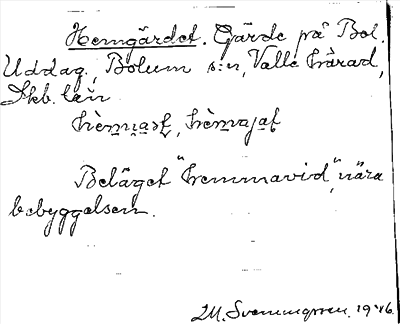 Hemgärdet. Gärde på Bol.
Uddag., Bolum s:n, Valle härad,
Skb. län
Beläget "hemmavid", nära
bebyggelsen.
M. Svenungsson, 1946.